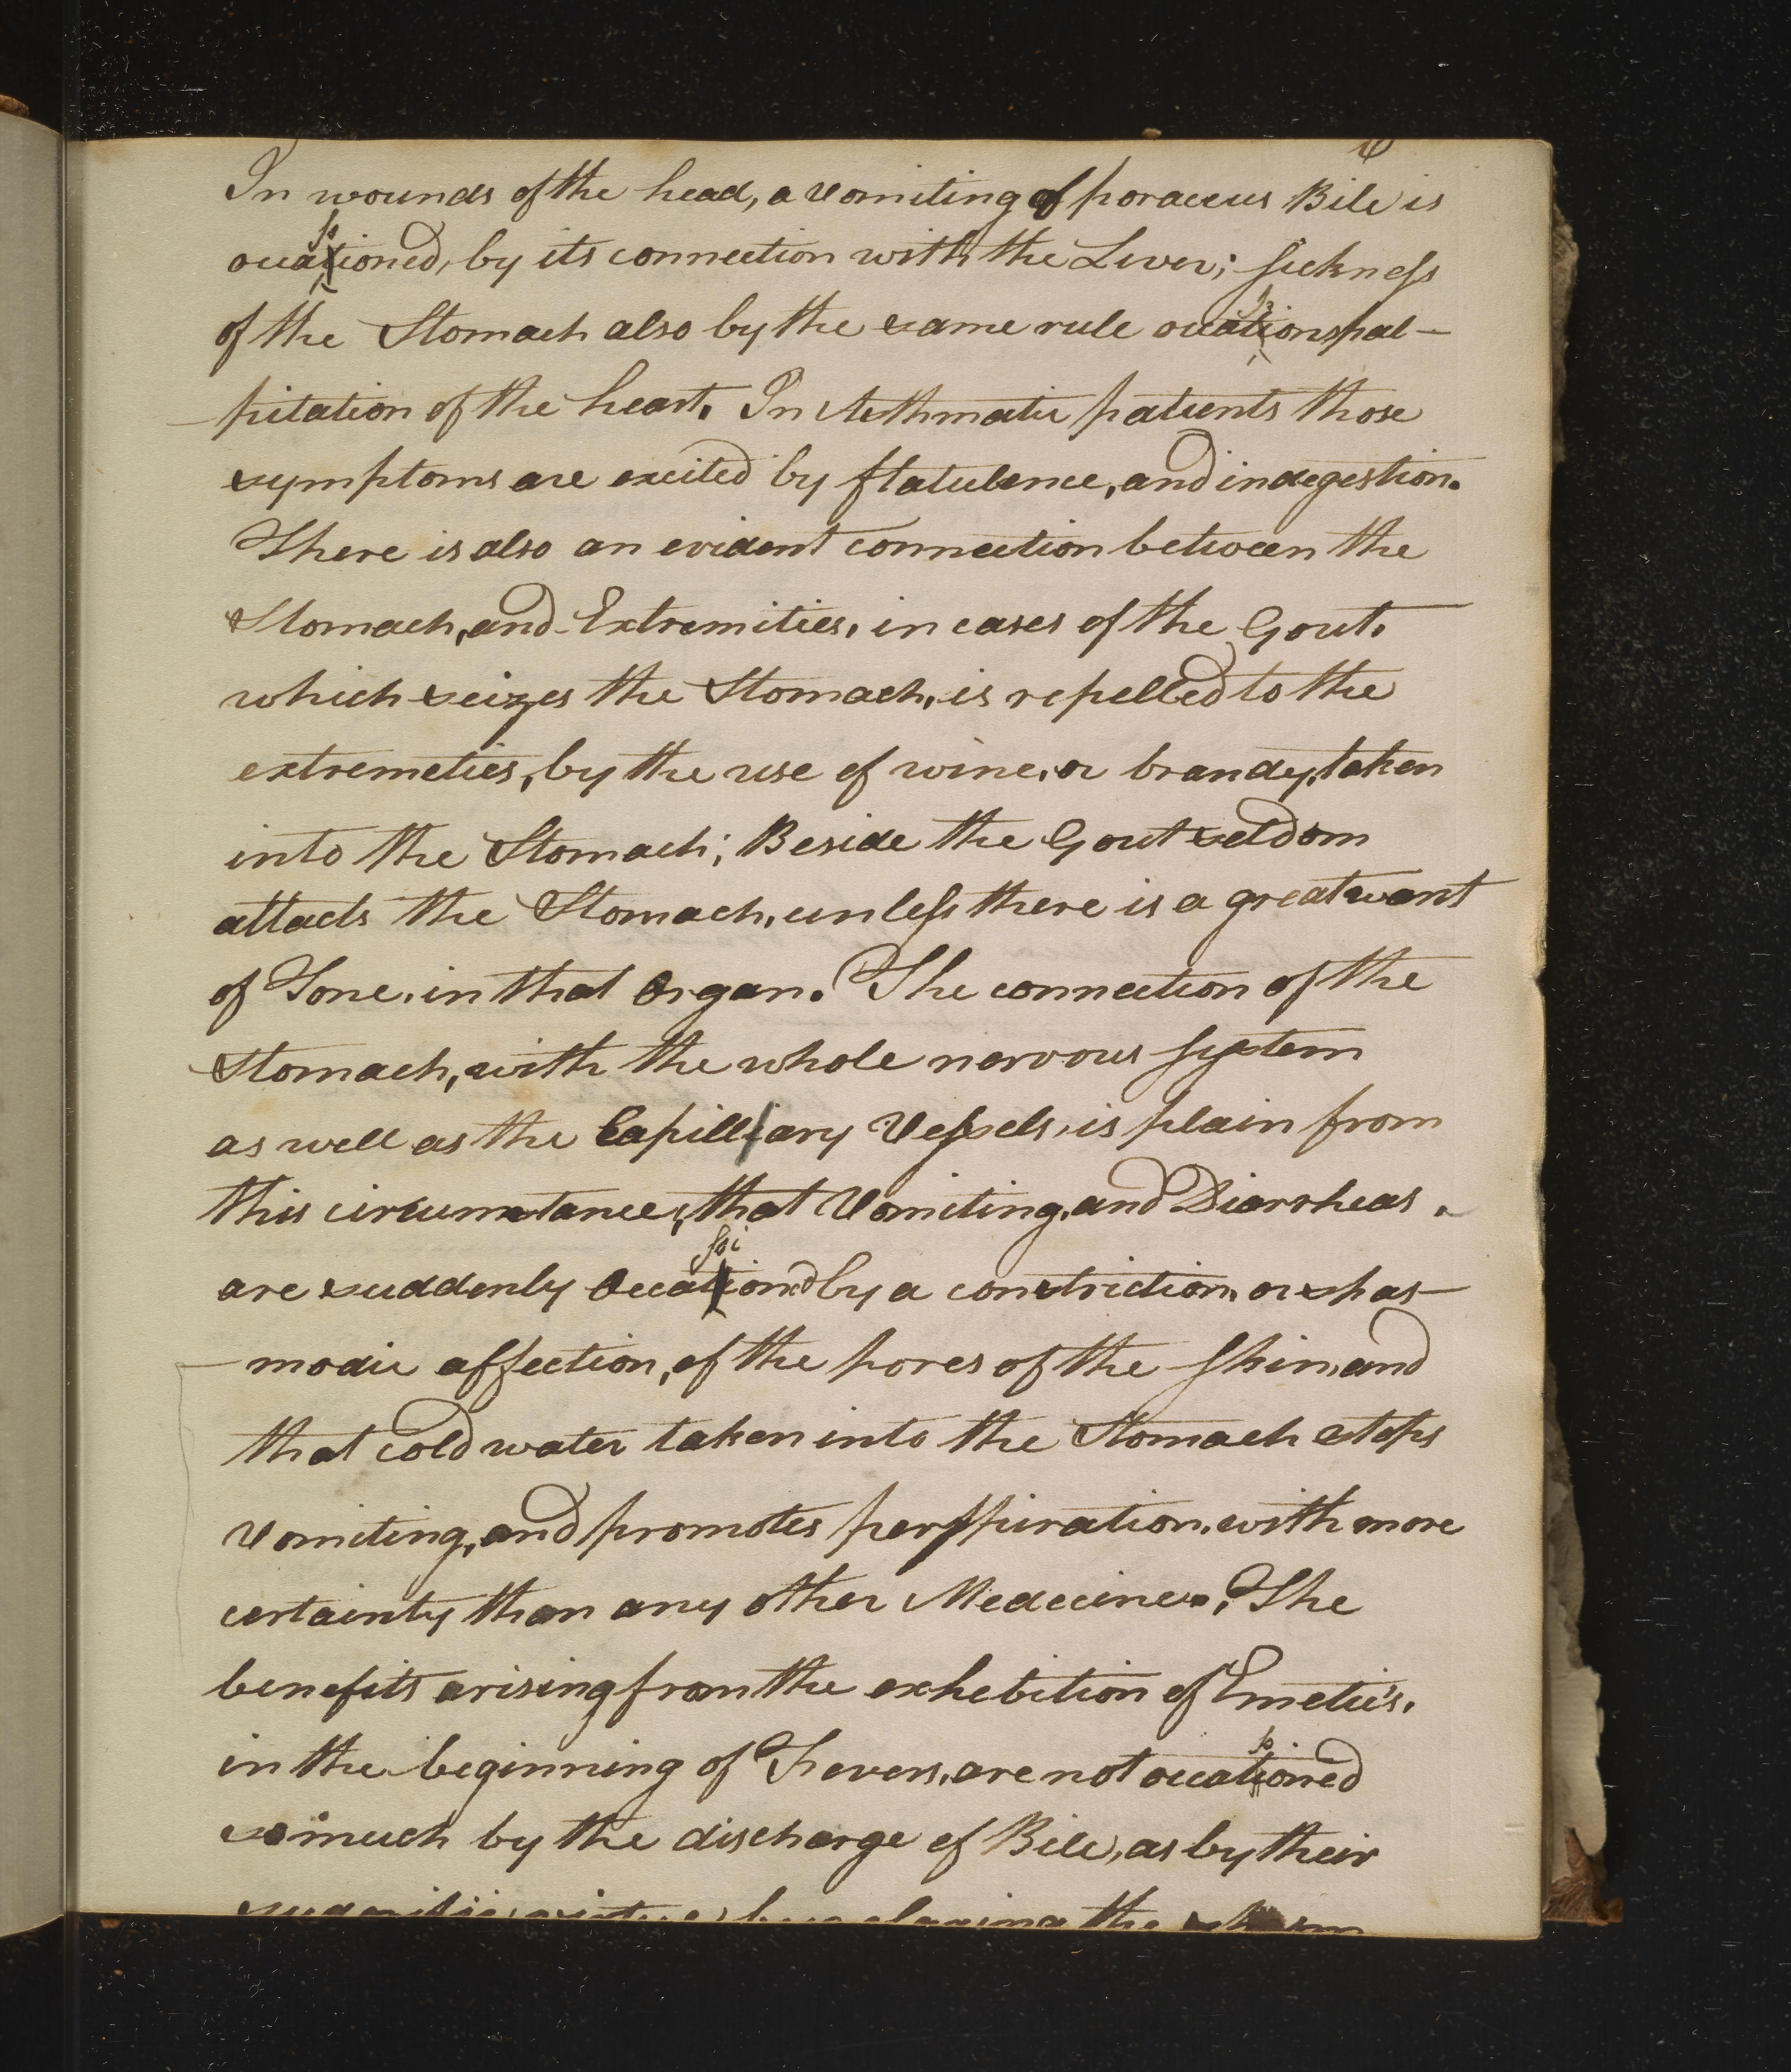 In wounds of the head, a vomiting of poraceus Bile is
occasioned, by its connection with the Liver; sickness
of the Stomach also by the same rule occasions pal-
-pitation of the heart. In Asthmatic patients those
symptoms are excited by flatulence, and indegestion.
There is also an evident connection between the
Stomach, and Extremities, in cases of the Gout,
which seizes the Stomach, is repelled to the
extremeties, by the use of wine, or brandy, taken
into the Stomach; Beside the Gout seldom
attacts the Stomach, unless there is a great want
of Tone, in that Organ. The connection of the
Stomach, with the whole nervous system
as well as the Capillary Vessels, is plain from
this circumstance, that Vomiting, and Diarrheas,
are suddenly Occasiond by a constriction, or spas-
-modic affection, of the pores of the skin, and
that cold water taken into the Stomach stops
Vomiting, and promotes perspiration, with more
certainty than any other Medecines. The
benefits arising from the exhebition of Emetic's,
in the beginning of Fevers, are not occasioned
so much by the discharge of Bile, as by their
the